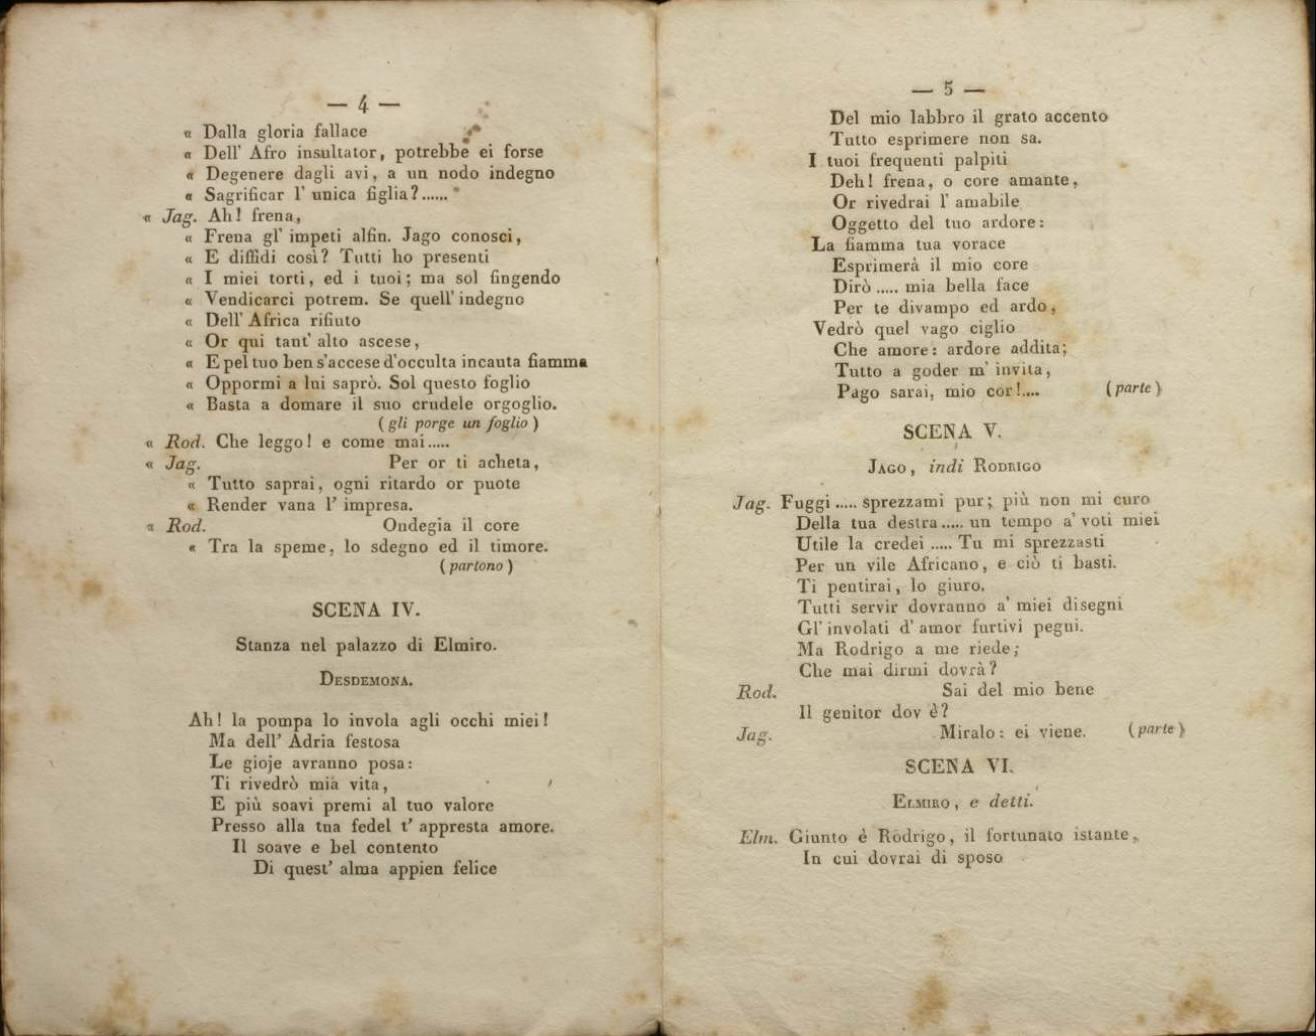 — 4 —
« Dalla gloria fallace
« Dell' Afro insultator, potrebbe ei forse
« Degenere dagli avi, a un nodo indegno
« Sagrificar l' unica figlia?......
« Jag. Ah! frena,
« Frena gl' impeti alfin. Jago conosci,
« E diffidi così? Tutti ho presenti
« I miei torti, ed i tuoi; ma sol fingendo
« Vendicarci potrem. Se quell' indegno
« Dell' Africa rifiuto
« Or qui tant' alto ascese,
« E pel tuo ben s'accese d'occulta incauta fiamma
« Oppormi a lui saprò. Sol questo foglio
« Basta a domare il suo crudele orgoglio.
( gli porge un foglio )
« Rod. Che leggo! e come mai.....
« Jag. Per or ti acheta,
« Tutto saprai, ogni ritardo or puote
« Render vana l' impresa.
« Rod. Ondegia il core
« Tra la speme, lo sdegno ed il timore.
( partono )
SCENA IV.
Stanza nel palazzo di Elmiro.
DESDEMONA.
Ah! la pompa lo invola agli occhi miei!
Ma dell' Adria festosa
Le gioje avranno posa:
Ti rivedrò mia vita,
E più soavi premi al tuo valore
Presso alla tua fedel t' appresta amore.
Il soave e bel contento
Di quest' alma appien felice
— 5 —
Del mio labbro il grato accento
Tutto esprimere non sa.
I tuoi frequenti palpiti
Deh! frena, o core amante,
Or rivedrai l' amabile
Oggetto del tuo ardore:
La fiamma tua vorace
Esprimerà il mio core
Dirò ..... mia bella face
Per te divampo ed ardo,
Vedrò quel vago ciglio
Che amore: ardore addita;
Tutto a goder m' invita,
Pago sarai, mio cor!.... (parte)
SCENA V.
JAGO, indi RODRIGO
Jag. Fuggi ..... sprezzami pur; più non mi curo
Della tua destra ..... un tempo a' voti miei
Utile la credei ..... Tu mi sprezzasti
Per un vile Africano, e ciò ti basti.
Ti pentirai, lo giuro.
Tutti servir dovranno a' miei disegni
Gl' involati d' amor furtivi pegni.
Ma Rodrigo a me riede;
Che mai dirmi dovrà?
Rod. Sai del mio bene
Il genitor dov è?
Jag. Miralo: ei viene. (parte)
SCENA VI.
ELMIRO, e detti.
Elm. Giunto è Rodrigo, il fortunato istante,
In cui dovrai di sposo